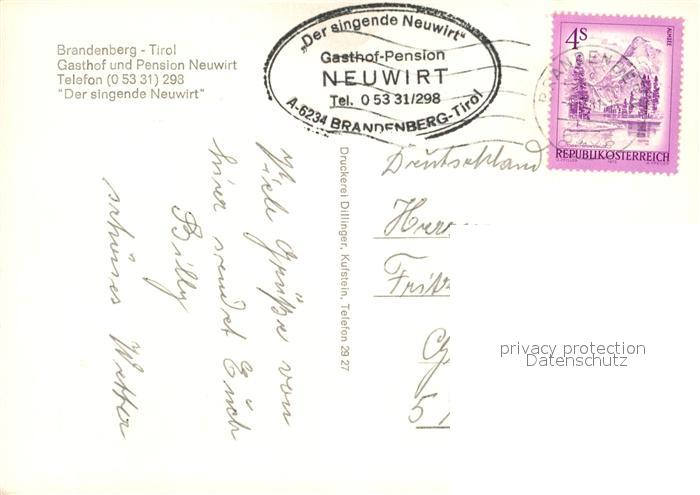 Brandenberg - Tirol
Gasthof und Pension Neuwirt
Telefon (0 53 31) 298
"Der singende Neuwirt"
„Der singende Neuwirt"
Gasthof-Pension
NEUWIRT
Tel. 0 53 31/298
A-6234 BRANDENBERG-Tirol
4S
ALMSEE
REPUBLIK ÖSTERREICH
BRANDENBERG
Viele Grüße von
hier sendet Euch
Billy
schönes Wetter
Druckerei Dillinger, Kufstein, Telefon 29 27
Deutschland
Herr
Fritz
5
privacy protection
Datenschutz